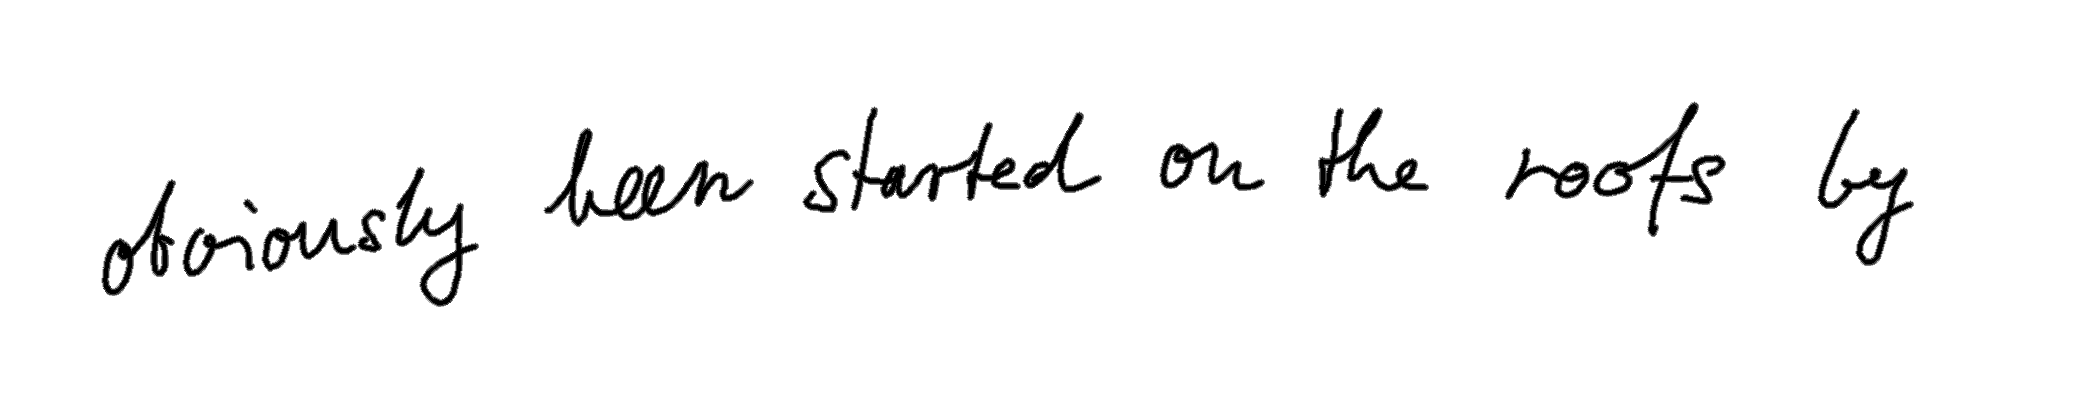 obviously been started on the roofs by